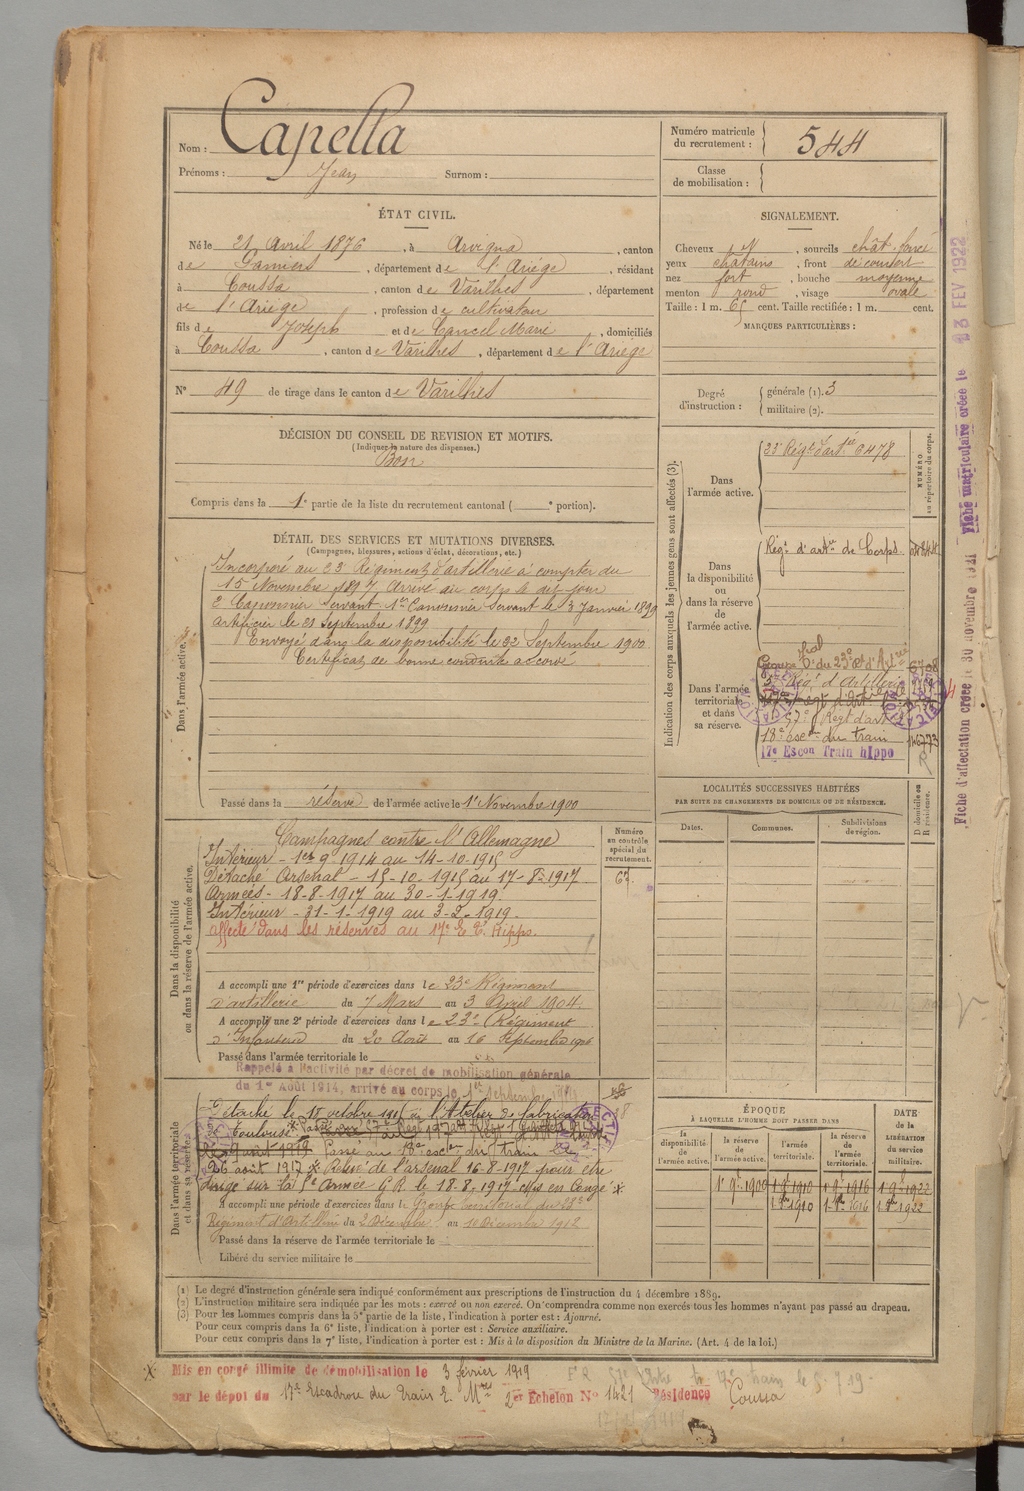 Nom : Capella
Prénoms : Jean Surnom :
Numéro matricule du recrutement : 544
Classe de mobilisation :
ÉTAT CIVIL.
Né le 21 Avril 1876, à Arvigna, canton
de Pamiers, département de l'Ariège, résidant
à Coussa, canton de Varilhes, département
de l'Ariège, profession de cultivateur
fils de Joseph et de Cancel Marie, domiciliés
à Coussa, canton de Varilhes, département de l'Ariège
N° 49 de tirage dans le canton de Varilhes
SIGNALEMENT.
Cheveux N, sourcils chât. foncé
yeux châtains, front découvert
nez fort, bouche moyenne
menton rond, visage ovale
Taille : 1 m. 65 cent. Taille rectifiée : 1 m. cent.
MARQUES PARTICULIÈRES :
Degré d'instruction : générale (1). 3
militaire (2).
DÉCISION DU CONSEIL DE REVISION ET MOTIFS.
(Indiquer la nature des dispenses.)
Bon
Compris dans la 1e partie de la liste du recrutement cantonal ( e portion).
DÉTAIL DES SERVICES ET MUTATIONS DIVERSES.
(Campagnes, blessures, actions d'éclat, décorations, etc.)
Dans l'armée active.
Incorporé au 23e Régiment d'artillerie à compter du
15 Novembre 1897 Arrivé au corps le dit jour
2e Canonnier Servant 1er Canonnier Servant le 3 Janvier 1899
artificier le 21 Septembre 1899
Envoyé dans la disponibilité le 22 Septembre 1900
Certificat de bonne conduite accordé
Passé dans la réserve de l'armée active le 1er Novembre 1900
Indication des corps auxquels les jeunes gens sont affectés (3).
NUMÉRO au répertoire du corps.
Dans l'armée active.
23e Régt d'artie 6478
Dans la disponibilité ou dans la réserve de l'armée active.
Régt d'artie de Corps
Dans l'armée territoriale et dans sa réserve.
Groupe tial du 23e d'Artie 6708
57e Régt d'art
18e esc. du train
17e Escon Train hIppo
LOCALITÉS SUCCESSIVES HABITÉES
PAR SUITE DE CHANGEMENTS DE DOMICILE OU DE RÉSIDENCE.
Dates. Communes. Subdivisions de région. D domicile ou R résidence.
Dans la disponibilité ou dans la réserve de l'armée active.
Numéro au contrôle spécial du recrutement.
Campagnes contre l'Allemagne
Intérieur - 1er 9e 1914 au 14-10-1915
Détaché Arsenal - 15-10-1915 au 17-8-1917
Armées - 18-8-1917 au 30-1-1919
Intérieur - 31-1-1919 au 3-2-1919.
affecté dans les réserves au 17e E. T. Hippo.
A accompli une 1re période d'exercices dans le 23e Régiment
d'artillerie du 7 Mars au 3 Avril 1904
A accompli une 2e période d'exercices dans le 23e Régiment
d'Infanterie du 20 Août au 16 Septembre 1906
Passé dans l'armée territoriale le
Rappelé à l'activité par décret de mobilisation générale
du 1er Août 1914, arrivé au corps le 1er Septembre 1914
Dans l'armée territoriale et dans sa réserve.
Détaché le 15 octobre 1915 à l'Atelier de fabrication
Toulouse
Passé au 18e escon du train le
26 août 1917 * Relevé de l'arsenal 16-8-1917 pour être
dirigé sur la 5e Armée G.R. le 18-8-1917. Mis en Congé *
A accompli une période d'exercices dans le Groupe territorial du 23e
Régiment d'Artillerie du 2 Décembre au 10 Décembre 1912
Passé dans la réserve de l'armée territoriale le
Libéré du service militaire le
ÉPOQUE
À LAQUELLE L'HOMME DOIT PASSER DANS
la disponibilité de l'armée active. la réserve de l'armée active. l'armée territoriale. la réserve de l'armée territoriale. DATE DE LA LIBÉRATION du service militaire.
1er 9e 1900 1er 9e 1910 1er 9e 1916 1er 9e 1922
1910 1916 1922
(1) Le degré d'instruction générale sera indiqué conformément aux prescriptions de l'instruction du 4 décembre 1889.
(2) L'instruction militaire sera indiquée par les mots : exercé ou non exercé. On comprendra comme non exercés tous les hommes n'ayant pas passé au drapeau.
(3) Pour les hommes compris dans la 5e partie de la liste, l'indication à porter est : Ajourné.
Pour ceux compris dans la 6e liste, l'indication à porter est : Service auxiliaire.
Pour ceux compris dans la 7e liste, l'indication à porter est : Mis à la disposition du Ministre de la Marine. (Art. 4 de la loi.)
* Mis en congé illimité de démobilisation le 3 février 1919
par le dépôt du 17e Escadron du Train 2er Echelon N° 1421 Résidence Coussa
Fiche d'affectation créée le 30 novembre 1921 Fiche matriculaire créée le 23 FEV 1922